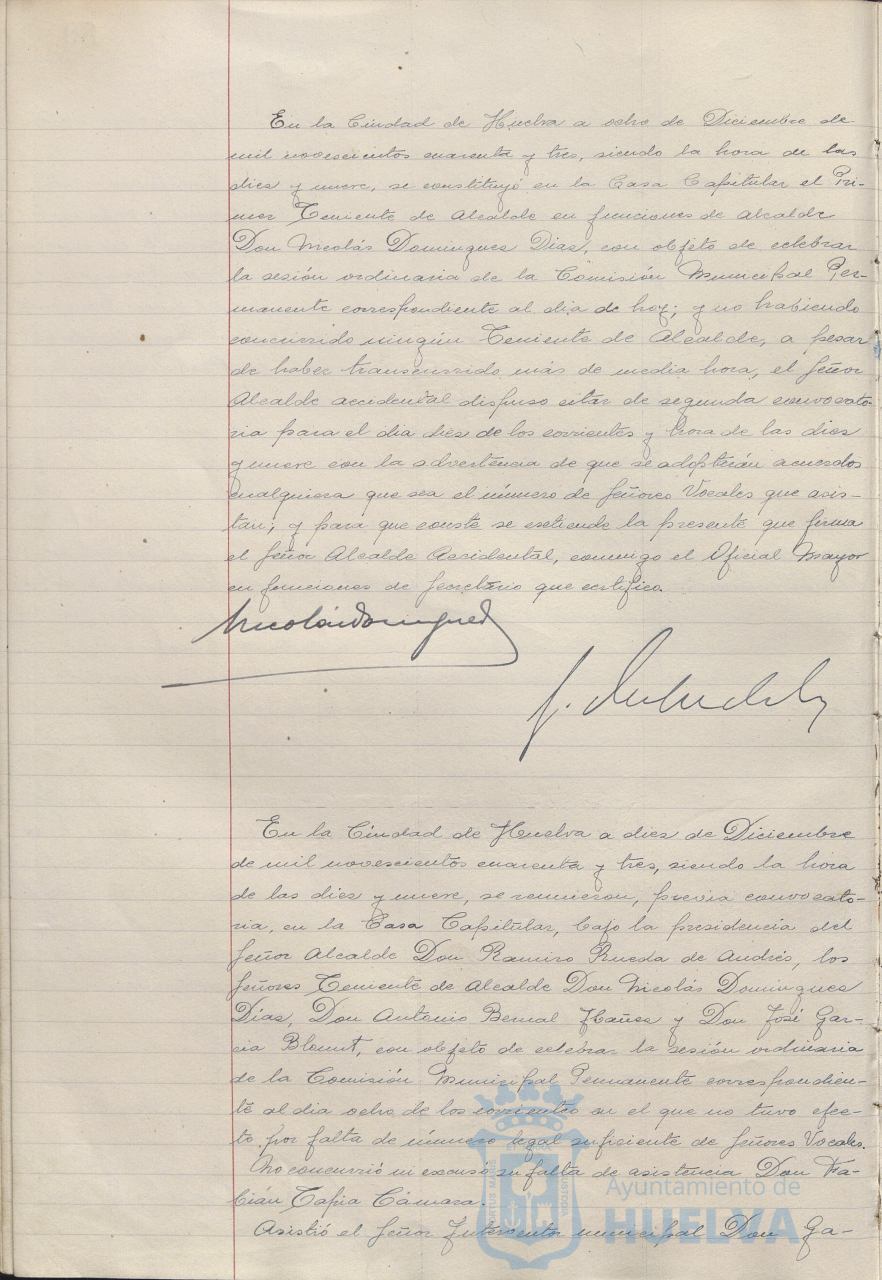 En la Ciudad de Huelva a ocho de Diciembre de
mil novescientos cuarenta y tres, siendo la hora de las
dies y nueve, se constituyó en la Casa Capitular el Pri-
mer Teniente de Alcalde en funciones de Alcalde
Don Nicolás Domingues Dias, con objeto de celebrar
la sesión ordinaria de la Comisión Municipal Per-
manente correspondiente al dia de hoy; y no habiendo
concurrido ningún Teniente de Alcalde, a pesar
de haber transcurrido más de media hora, el Señor
Alcalde accidental dispuso citar de segunda convocato-
ria para el dia dies de los corrientes y hora de las dies
y nueve con la advertencia de que se adoptarán acuerdos
cualquiera que sea el número de Señores Vocales que asis-
tan; y para que conste se extiende la presente que firma
el Señor Alcalde Accidental, conmigo el Oficial Mayor
en funciones de Secretario que certifico.
Nicolás Domingues
En la Ciudad de Huelva a dies de Diciembre
de mil novescientos cuarenta y tres, siendo la hora
de las dies y nueve, se reunieron, previa convocato-
ria, en la Casa Capitular, bajo la presidencia del
Señor Alcalde Don Ramiro Rueda de Andrés, los
Señores Teniente de Alcalde Don Nicolás Domingues
Días, Don Antonio Bernal Ibañes y Don José Gar-
cia Blount, con objeto de celebrar la sesión ordinaria
de la Comisión Municipal Permanente correspondien-
te al dia ocho de los corrientes en el que no tuvo efec-
to por falta de número legal suficiente de Señores Vocales.
No concurrió ni excusó su falta de asistencia Don Fa-
bián Tapia Cámara.
Asistió el Señor Interventor municipal Don Ga-
Ayuntamiento de
HUELVA